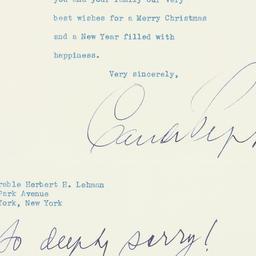 you and your family our very
best wishes for a Merry Christmas
and a New Year filled with
happiness.
Very sincerely,
rable Herbert H. Lehman
Park Avenue
York, New York
so deeply sorry!